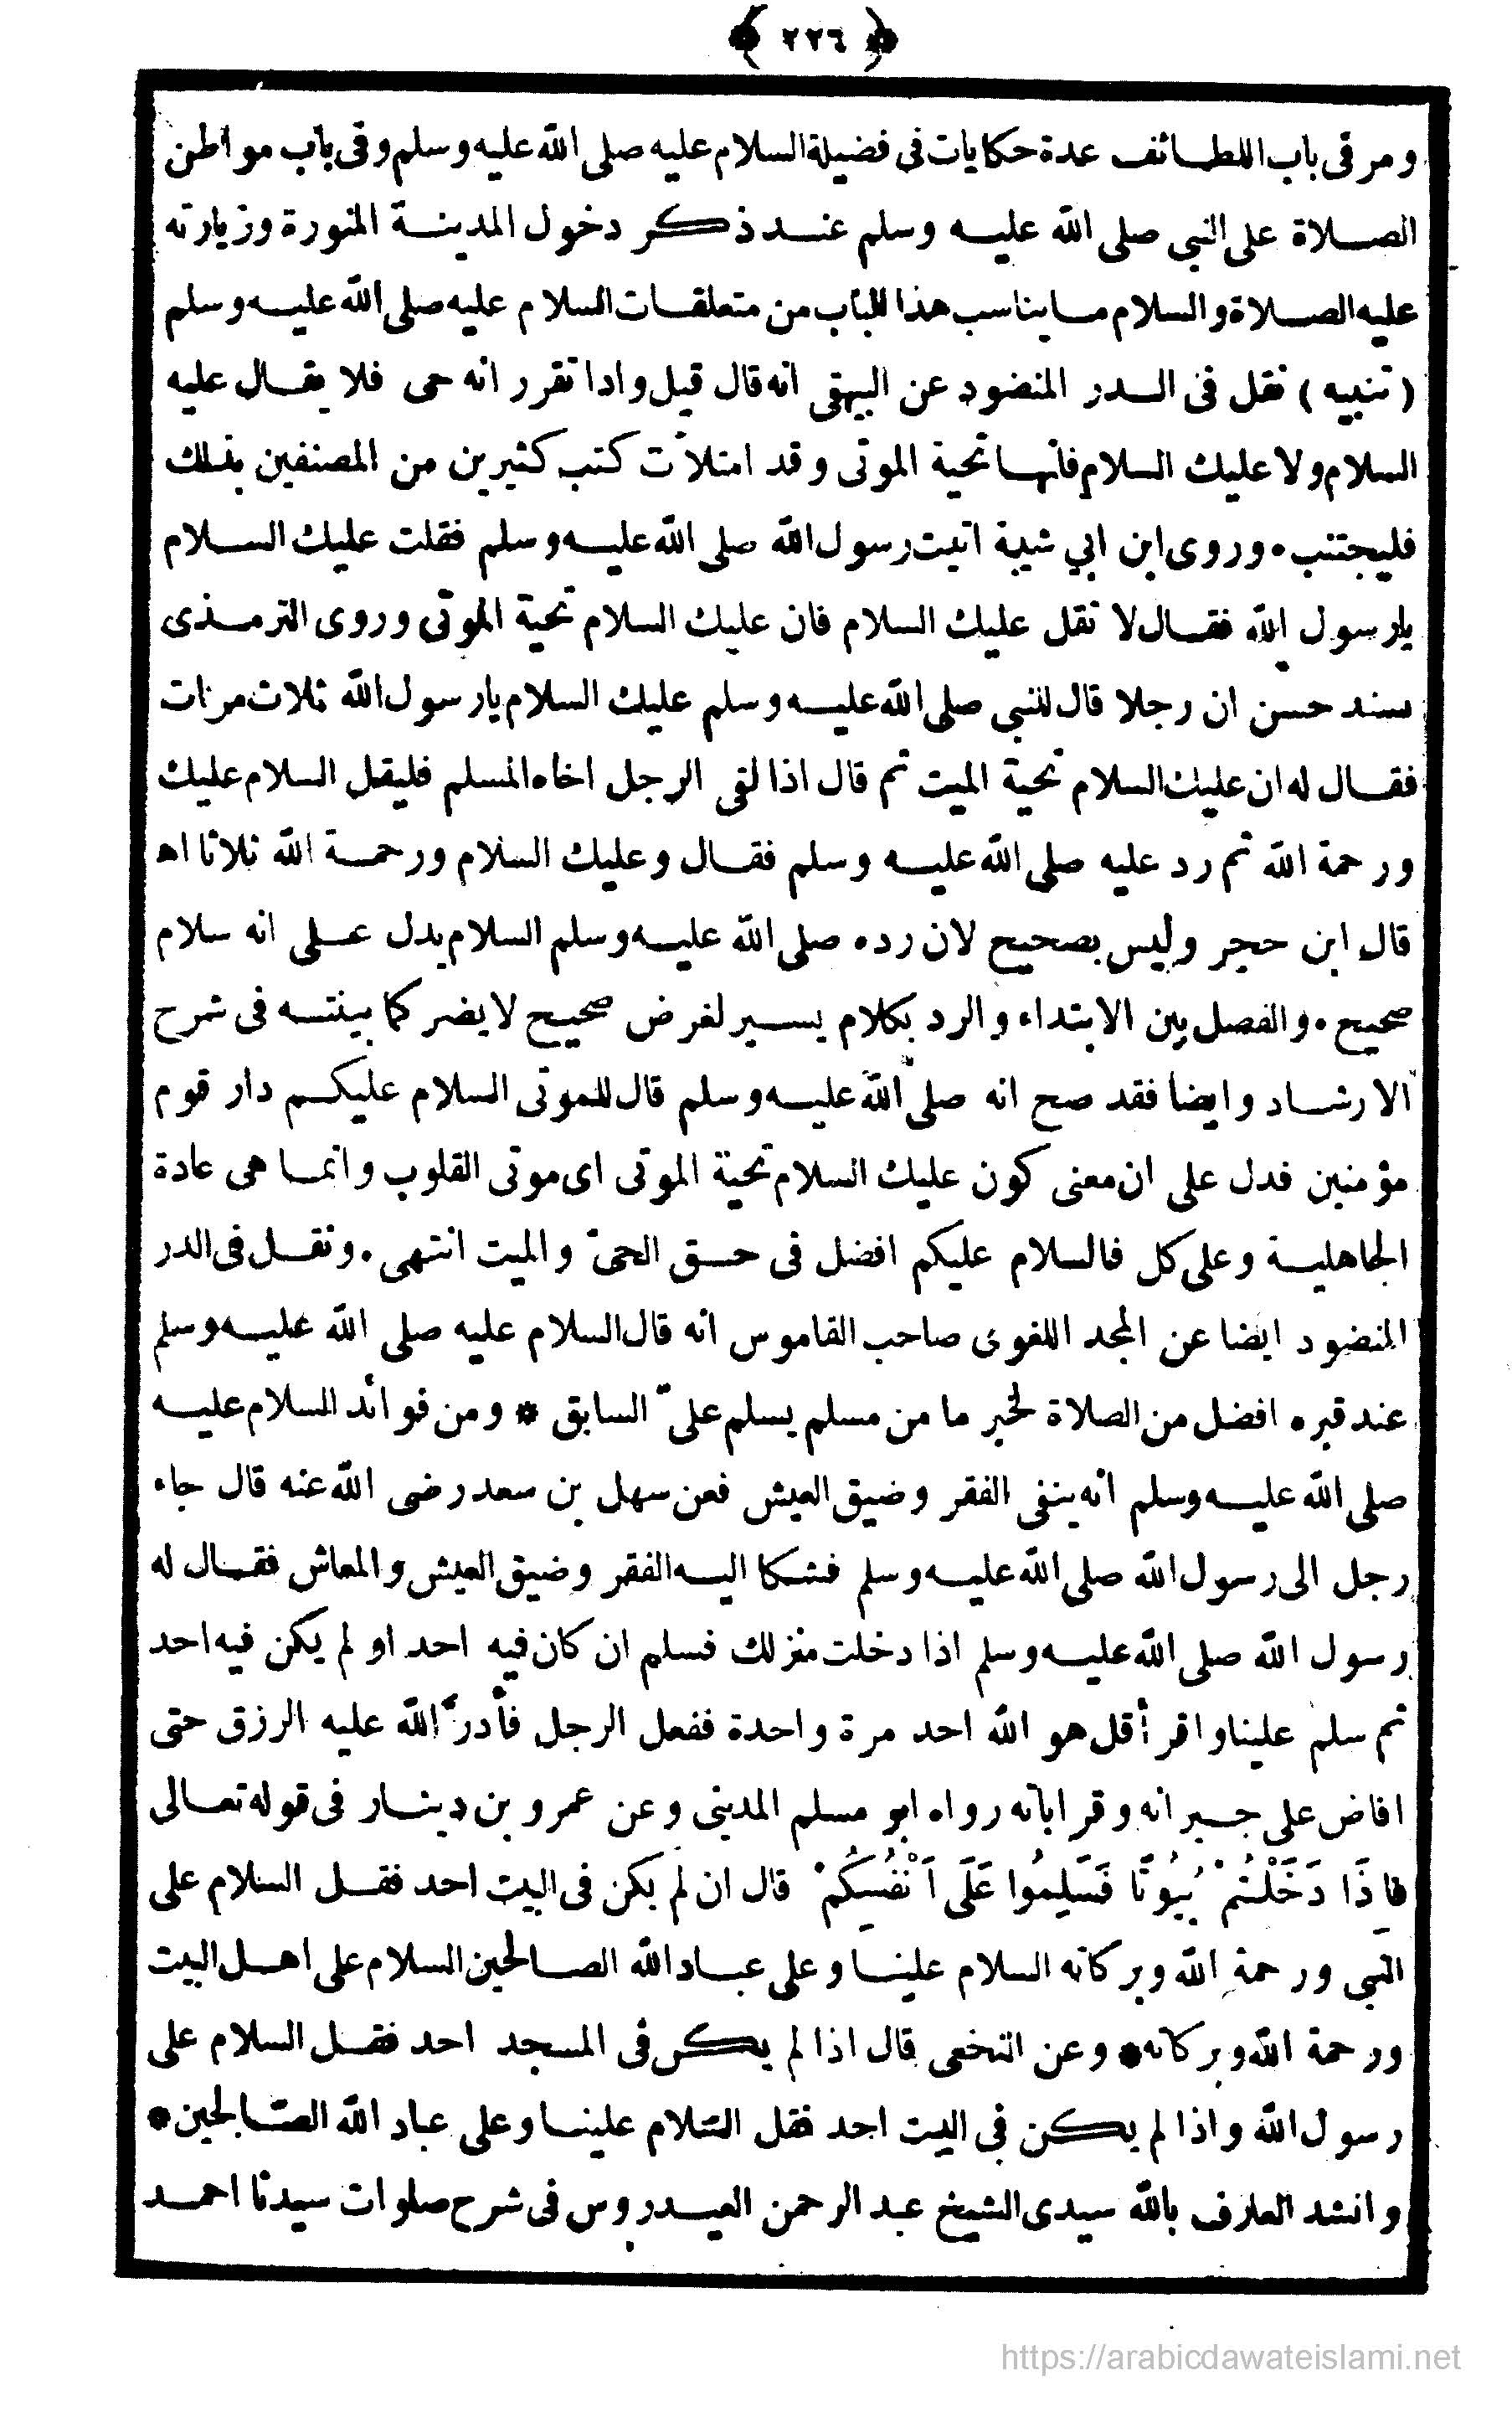 ﴿ ٢٢٦ ﴾
ومر فى باب اللطائف عدة حكايات فى فضيلة السلام عليه صلى الله عليه وسلم وفى باب مواطن
الصلاة على النبى صلى الله عليه وسلم عند ذكر دخول المدينة المنورة وزيارته
عليه الصلاة والسلام ما يناسب هذا الباب من متعلقات السلام عليه صلى الله عليه وسلم
( تنبيه ) نقل فى الدر المنضود عن البيهقى انه قال قيل واذا تقرر انه حى فلا يقال عليه
السلام ولا عليك السلام فانها تحية الموتى وقد امتلأت كتب كثيرين من المصنفين بذلك
فليجتنب • وروى ابن ابي شيبة اتيت رسول الله صلى الله عليه وسلم فقلت عليك السلام
يارسول الله فقال لا تقل عليك السلام فان عليك السلام تحية الموتى وروى الترمذى
بسند حسن ان رجلا قال للنبى صلى الله عليه وسلم عليك السلام يارسول الله ثلاث مرات
فقال له ان عليك السلام تحية الميت ثم قال اذا لقى الرجل اخاه المسلم فليقل السلام عليك
ورحمة الله ثم رد عليه صلى الله عليه وسلم فقال وعليك السلام ورحمة الله ثلاثا اه
قال ابن حجر وليس بصحيح لان رده صلى الله عليه وسلم السلام يدل على انه سلام
صحيح • والفصل بين الابتداء والرد بكلام يسير لغرض صحيح لا يضر كما بينته فى شرح
الارشاد وايضا فقد صح انه صلى الله عليه وسلم قال للموتى السلام عليكم دار قوم
مؤمنين فدل على ان معنى كون عليك السلام تحية الموتى اى موتى القلوب وانما هى عادة
الجاهلية وعلى كل فالسلام عليكم افضل فى حق الحىّ والميت انتهى • ونقل فى الدر
المنضود ايضا عن المجد اللغوى صاحب القاموس انه قال السلام عليه صلى الله عليه وسلم
عند قبره افضل من الصلاة لخبر ما من مسلم يسلم علىّ السابق * ومن فوائد السلام عليه
صلى الله عليه وسلم انه ينفى الفقر وضيق العيش فعن سهل بن سعد رضى الله عنه قال جاء
رجل الى رسول الله صلى الله عليه وسلم فشكا اليه الفقر وضيق العيش والمعاش فقال له
رسول الله صلى الله عليه وسلم اذا دخلت منزلك فسلم ان كان فيه احد او لم يكن فيه احد
ثم سلم علينا واقرأ قل هو الله احد مرة واحدة ففعل الرجل فأدرّ الله عليه الرزق حتى
افاض على جيرانه وقراباته رواه ابو مسلم المدينى وعن عمرو بن دينار فى قوله تعالى
فَاِذَا دَخَلْتُمْ بُيُوتًا فَسَلِّمُوا عَلَى اَنْفُسِكُمْ قال ان لم يكن فى البيت احد فقل السلام على
النبى ورحمة الله وبركاته السلام علينا وعلى عباد الله الصالحين السلام على اهل البيت
ورحمة الله وبركاته* وعن النخعى قال اذا لم يكن فى المسجد احد فقل السلام على
رسول الله واذا لم يكن فى البيت احد فقل السّلام علينا وعلى عباد الله الصّالحين*
وانشد العارف بالله سيدى الشيخ عبد الرحمن العيدروس فى شرح صلوات سيدنا احمد
https://arabicdawateislami.net